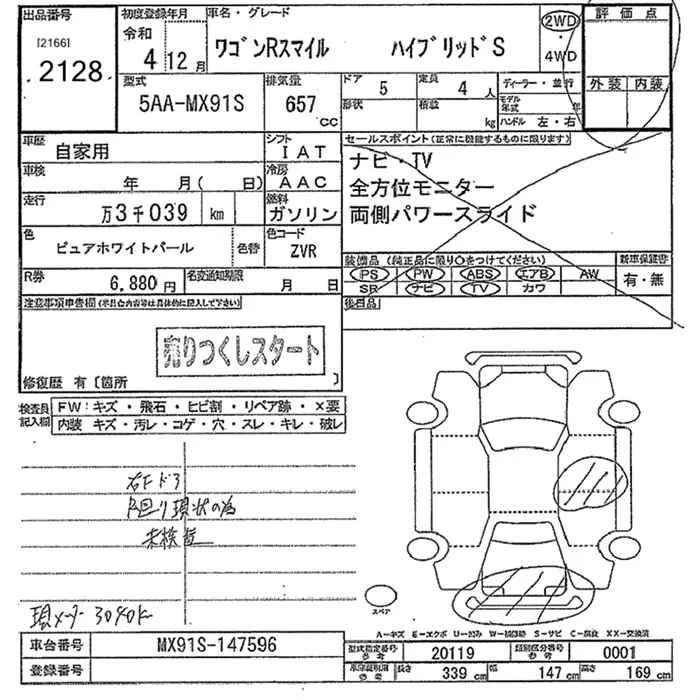 出品番号
I21661
2128
初度登録年月
令和
4年12月
車名・グレード
ワゴンRスマイル ハイブリッドS
2WD
・
4WD
評価点
外装 内装
型式
5AA-MX91S
排気量
657
CC
ドア
5
形状
定員
4人
積載
kg
ディーラー・並行
モデル
年式 年
ハンドル 左・右
車歴
自家用
シフト
IAT
車検
年 月( 日)
冷房
AAC
走行
万3千039 km
燃料
ガソリン
色
ピュアホワイトパール
色替
色コード
ZVR
R券
6,880円
名変通知期限
月 日
セールスポイント(正常に機能するものに限ります)
ナビ・TV
全方位モニター
両側パワースライド
装備品(純正品に限り○をつけてください)
PS PW ABS エアB AW
SR ナビ TV カワ
新車保証書
有・無
後日品
注意事項申告欄
売りつくしスタート
修復歴 有〔箇所 〕
検査員
記入欄
FW:キズ・飛石・ヒビ割・リペア跡・X要
内装 キズ・汚レ・コゲ・穴・スレ・キレ・破レ
右Fドア
現状の為
未検
現メーター 3040K
スペア
A-キズ E-エクボ U-凹み W-補修跡 S-サビ C-腐食 XX-交換済
車台番号
MX91S-147596
登録番号
型式指定番号
参考
20119
類別区分番号
参考
0001
長さ
339 cm
幅
147 cm
高さ
169 cm